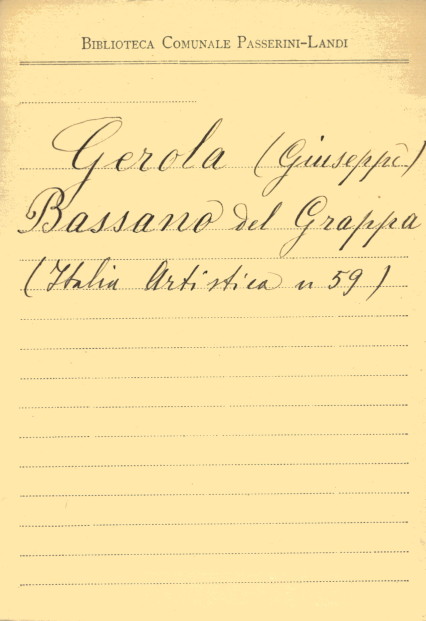 BIBLIOTECA COMUNALE PASSERINI-LANDI
Gerola (Giuseppe)
Bassano del Grappa
(Italia Artistica n 59)